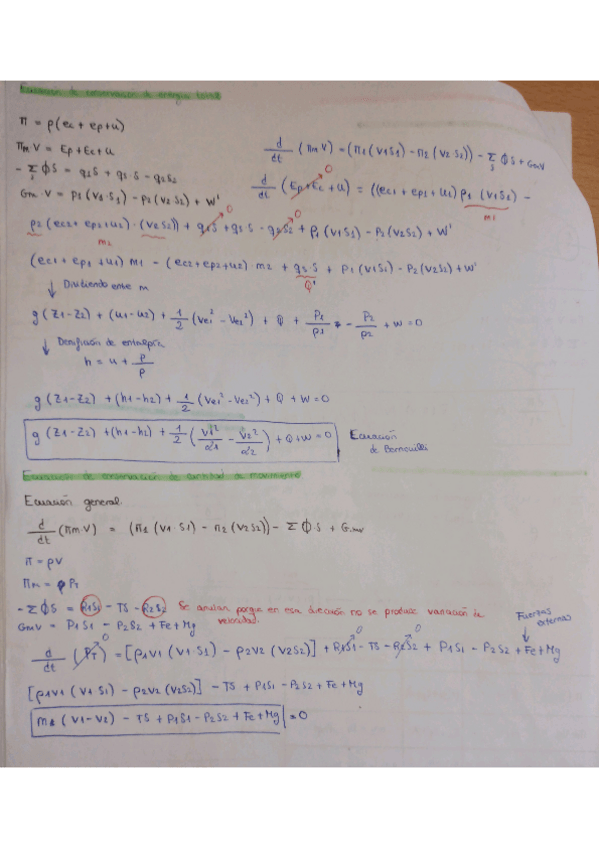 Ecuación de conservación de energía total
π = ρ(ec + ep + u)
πm V = Ep + Ec + u
d/dt (πm V) = (π1 (V1 S1) - π2 (V2 S2)) - Σs ϕS + GmV
- Σs ϕS = q1S + qs·S - q2S2
Gm·V = P1 (V1·S1) - P2 (V2 S2) + W'
d/dt (Ep + Ec + u) = ((ec1 + ep1 + u1) ρ1 (V1 S1) -
0
m1
ρ2 (ec2 + ep2 + u2)·(V2 S2)) + q1S + qs S - q2S2 + P1 (V1S1) - P2 (V2S2) + W'
0 0
m2
(ec1 + ep1 + u1) m1 - (ec2 + ep2 + u2)·m2 + qs S + P1 (V1S1) - P2(V2S2) + W'
Q'
↓ Dividiendo entre m
g (Z1-Z2) + (u1-u2) + 1/2 (Ve1² - Ve2²) + Q + P1/ρ1 - P2/ρ2 + W = 0
↓ Definición de entalpía
h = u + P/ρ
g (Z1-Z2) + (h1-h2) + 1/2 (Ve1² - Ve2²) + Q + W = 0
g (Z1-Z2) + (h1-h2) + 1/2 (V1²/α1 - V2²/α2) + Q + W = 0
Ecuación
de Bernouilli
Ecuación de conservación de cantidad de movimiento
Ecuación general
d/dt (πm·V) = (π1 (V1·S1) - π2 (V2S2)) - Σ ϕ·S + G.mv
π = ρV
πm = PT
- Σ ϕS = R1S1 - TS - R2S2 Se anulan porque en esa dirección no se produce variación de
velocidad.
GmV = P1S1 - P2S2 + Fe + Mg
Fuerzas
externas
d/dt (PT) = [ρ1V1 (V1 S1) - ρ2V2 (V2S2)] + R1S1 - TS - R2S2 + P1S1 - P2S2 + Fe + Mg
0 0 0
[ρ1V1 (V1 S1) - ρ2V2 (V2S2)] - TS + P1S1 - P2S2 + Fe + Mg
m (V1-V2) - TS + P1S1 - P2S2 + Fe + Mg = 0